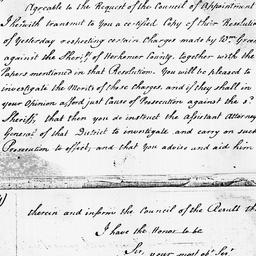 Agreeable to the Request of the Council of Appointment
I herewith transmit to You a certified Copy of their Resolution
of Yesterday respecting certain Charges made by Wm. Gro
against the Sheriff of Herkemer County, together with the
Papers mentioned in that Resolution. You will be pleased to
investigate the Merits of those charges, and if they shall in
your Opinion afford just Cause of Prosecution against the sd.
Sheriff, that then you do instruct the Assistant Attorney
General of that District to investigate and carry on such
Prosecution to effect, and that you advise and aid him
therein and inform the Council of the Result th
I have the Honor to be
Sir, your most obt. Sert.